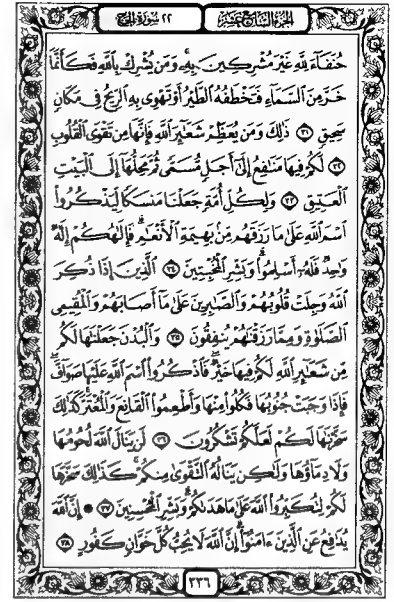 الجزء السابع عشر ٢٢ سورة الحج
حُنَفَآءَ لِلَّهِ غَيْرَ مُشْرِكِينَ بِهِۦ ۚ وَمَن يُشْرِكْ بِٱللَّهِ فَكَأَنَّمَا
خَرَّ مِنَ ٱلسَّمَآءِ فَتَخْطَفُهُ ٱلطَّيْرُ أَوْ تَهْوِى بِهِ ٱلرِّيحُ فِى مَكَانٍ
سَحِيقٍ ٣١ ذَٰلِكَ وَمَن يُعَظِّمْ شَعَٰٓئِرَ ٱللَّهِ فَإِنَّهَا مِن تَقْوَى ٱلْقُلُوبِ
٣٢ لَكُمْ فِيهَا مَنَٰفِعُ إِلَىٰٓ أَجَلٍ مُّسَمًّى ثُمَّ مَحِلُّهَآ إِلَى ٱلْبَيْتِ
ٱلْعَتِيقِ ٣٣ وَلِكُلِّ أُمَّةٍ جَعَلْنَا مَنسَكًا لِّيَذْكُرُوا۟
ٱسْمَ ٱللَّهِ عَلَىٰ مَا رَزَقَهُم مِّنۢ بَهِيمَةِ ٱلْأَنْعَٰمِ ۗ فَإِلَٰهُكُمْ إِلَٰهٌ
وَٰحِدٌ فَلَهُۥٓ أَسْلِمُوا۟ ۗ وَبَشِّرِ ٱلْمُخْبِتِينَ ٣٤ ٱلَّذِينَ إِذَا ذُكِرَ
ٱللَّهُ وَجِلَتْ قُلُوبُهُمْ وَٱلصَّٰبِرِينَ عَلَىٰ مَآ أَصَابَهُمْ وَٱلْمُقِيمِى
ٱلصَّلَوٰةِ وَمِمَّا رَزَقْنَٰهُمْ يُنفِقُونَ ٣٥ وَٱلْبُدْنَ جَعَلْنَٰهَا لَكُم
مِّن شَعَٰٓئِرِ ٱللَّهِ لَكُمْ فِيهَا خَيْرٌ ۖ فَٱذْكُرُوا۟ ٱسْمَ ٱللَّهِ عَلَيْهَا صَوَآفَّ ۖ
فَإِذَا وَجَبَتْ جُنُوبُهَا فَكُلُوا۟ مِنْهَا وَأَطْعِمُوا۟ ٱلْقَانِعَ وَٱلْمُعْتَرَّ ۚ كَذَٰلِكَ
سَخَّرْنَٰهَا لَكُمْ لَعَلَّكُمْ تَشْكُرُونَ ٣٦ لَن يَنَالَ ٱللَّهَ لُحُومُهَا
وَلَا دِمَآؤُهَا وَلَٰكِن يَنَالُهُ ٱلتَّقْوَىٰ مِنكُمْ ۚ كَذَٰلِكَ سَخَّرَهَا
لَكُمْ لِتُكَبِّرُوا۟ ٱللَّهَ عَلَىٰ مَا هَدَىٰكُمْ ۗ وَبَشِّرِ ٱلْمُحْسِنِينَ ٣٧ ۞ إِنَّ ٱللَّهَ
يُدَٰفِعُ عَنِ ٱلَّذِينَ ءَامَنُوٓا۟ ۗ إِنَّ ٱللَّهَ لَا يُحِبُّ كُلَّ خَوَّانٍ كَفُورٍ ٣٨
٣٣٦